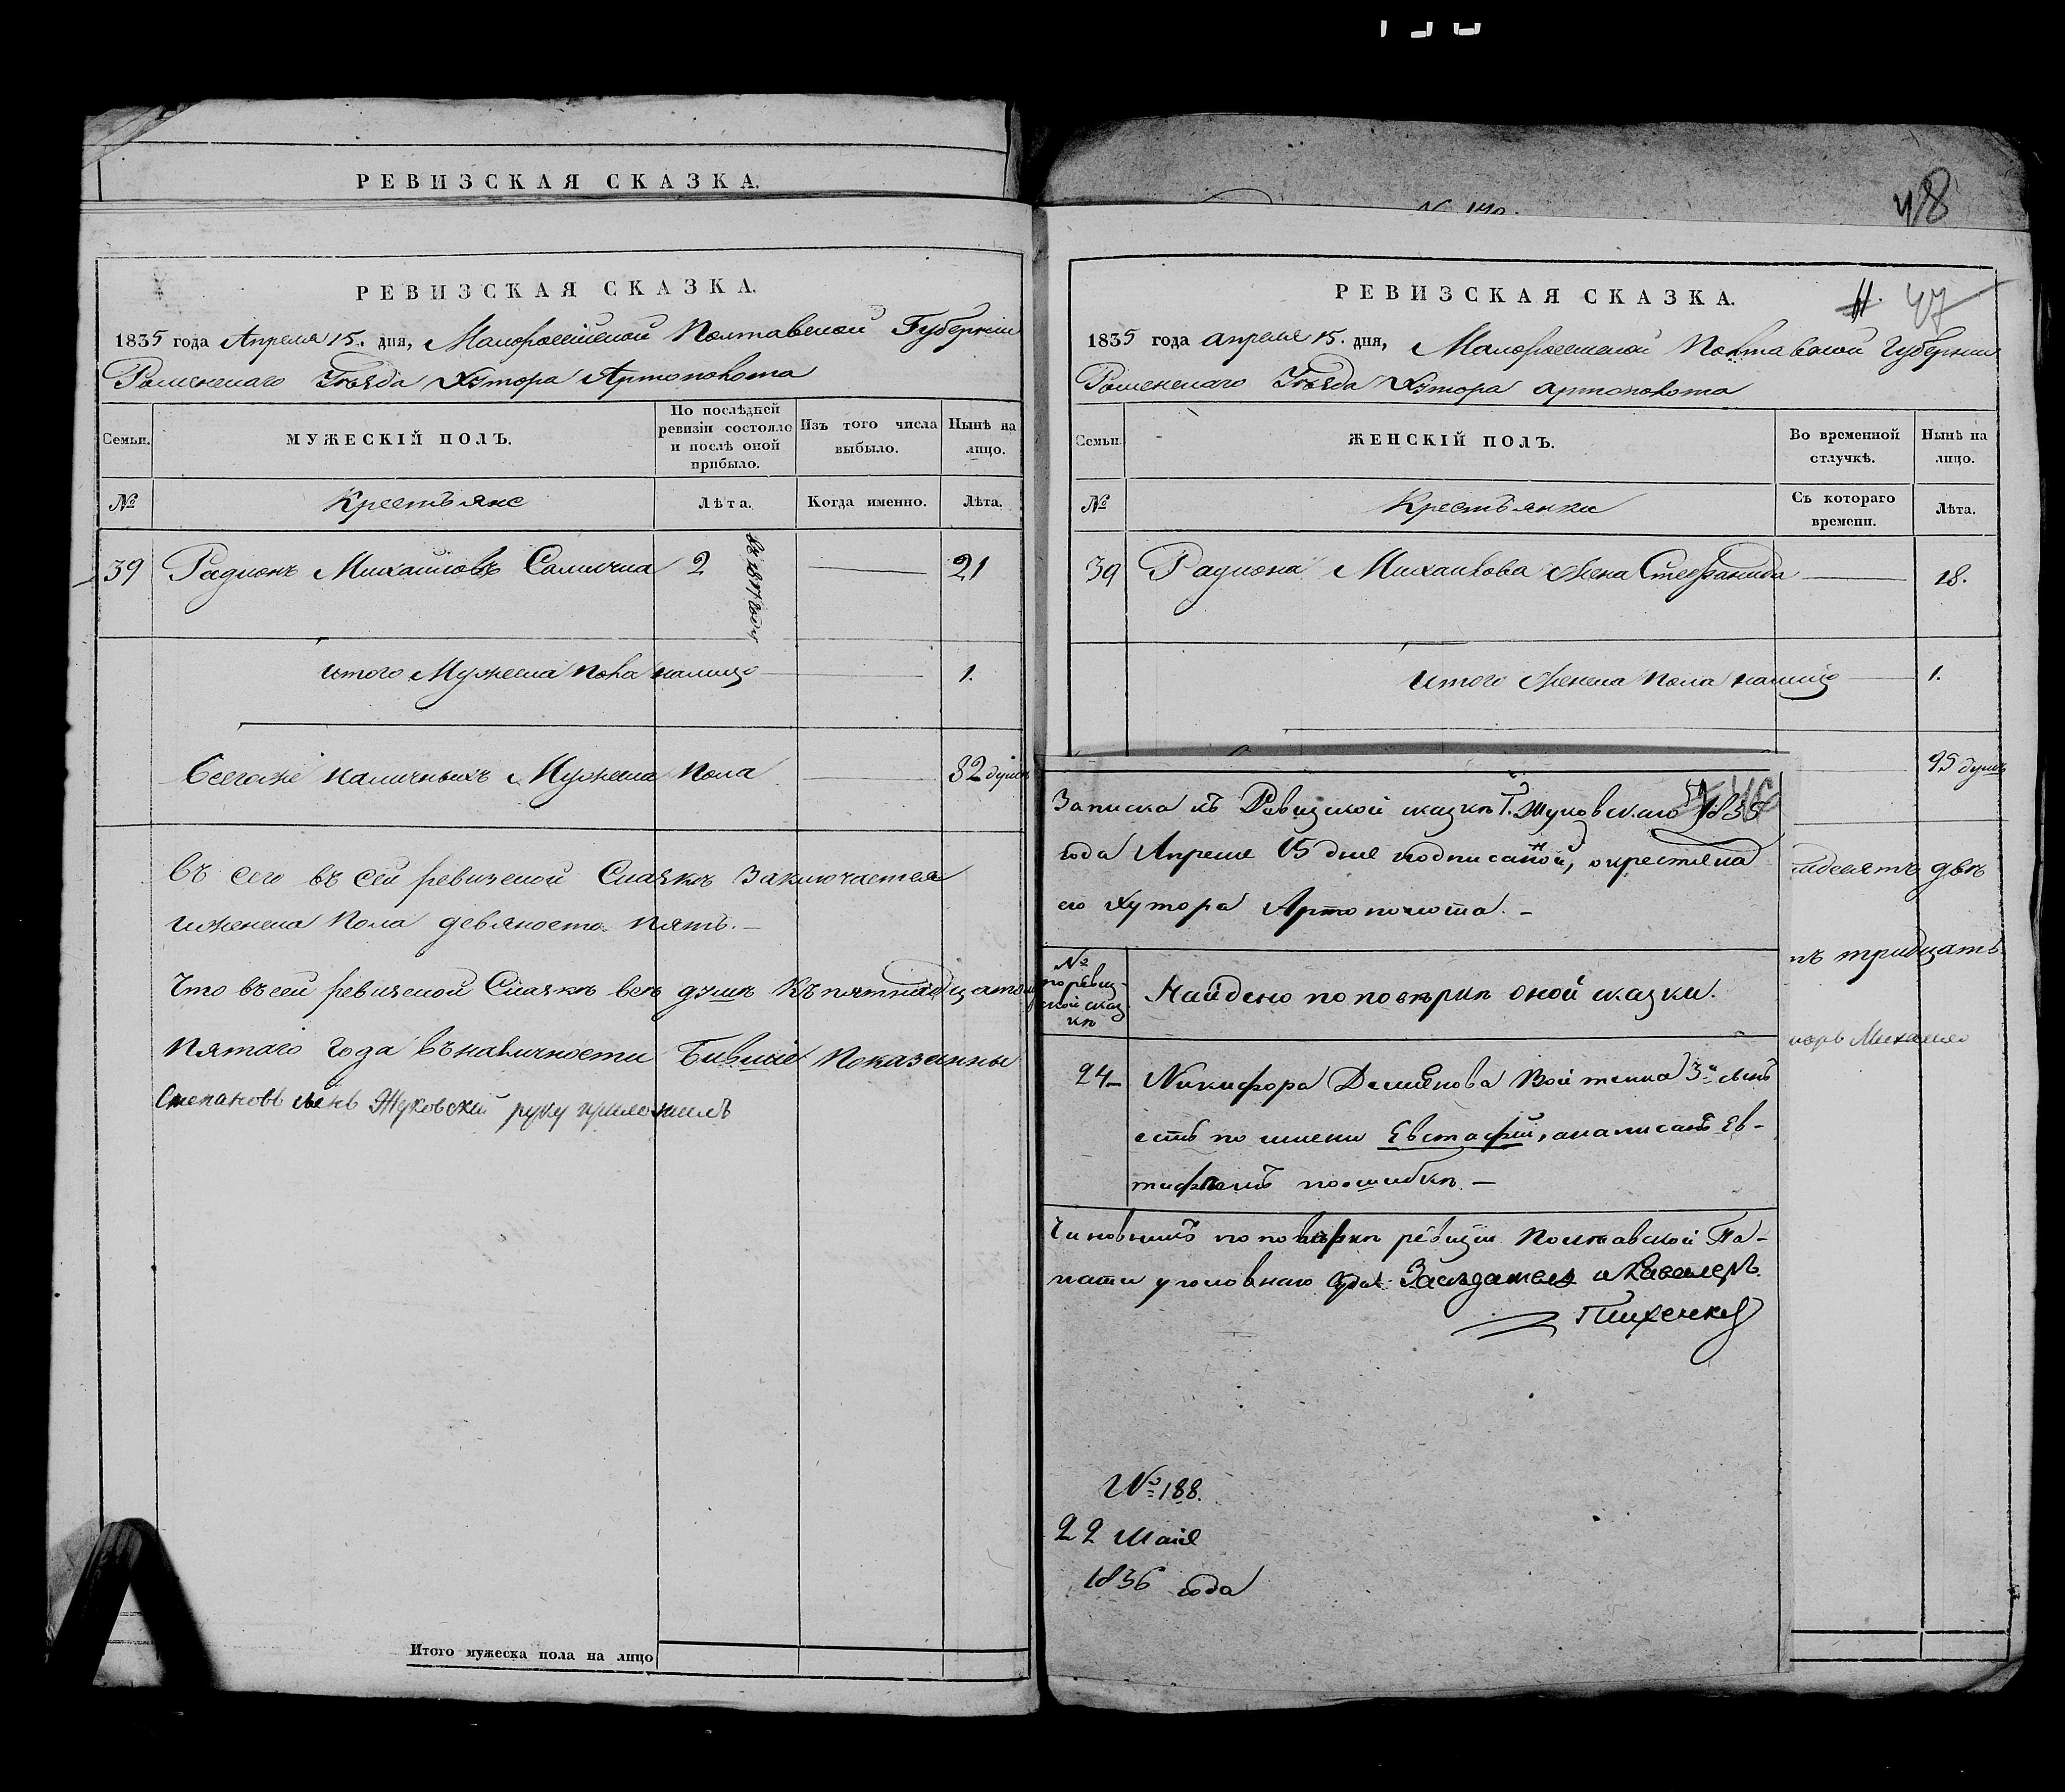 РЕВИЗСКАЯ СКАЗКА.
РЕВИЗСКАЯ СКАЗКА.
1835 года Апреля 15. дня, Малороссійской Полтавской Губерніи
Роменскаго Уѣзда Хутора Артополота
Семьи.
МУЖЕСКІЙ ПОЛЪ.
По послѣдней ревизіи состояло и послѣ оной прибыло.
Изъ того числа выбыло.
Нынѣ на лицо.
№
Крестьяне
Лѣта.
Когда именно.
Лѣта.
39 Радионъ Михайловъ 2 21
итого Мужеска пола налицо 1.
Всегоже наличныхъ Мужеска пола 82 душъ
въ сей ревизской Сказкѣ Заключается
иженска пола девяносто пять.
Что въ сей ревизской Сказкѣ всѣ душъ къ пятнадцатому
пятаго года въ наличности Бывшіе показанны
Степановъ сынъ Жуковскій руку приложилъ
Итого мужеска пола на лицо
48
РЕВИЗСКАЯ СКАЗКА.
47
1835 года апреля 15. дня, Малороссійской Полтавской Губерніи
Роменскаго Уѣзда Хутора артополота
Семьи.
ЖЕНСКІЙ ПОЛЪ.
Во временной отлучкѣ.
Нынѣ на лицо.
№
Крестьянки
Съ котораго времени.
Лѣта.
39 Радиона Михайлова жена Стефанида 18.
Итого женска пола налицо 1.
95 душъ
двѣ
тридцать
Михайло
Записка къ Ревизской сказкѣ Г. Жуковскаго 1835
года Апреля 15 дня подписаной, о крестьяна
его хутора Артополота.
№ по ревизской сказкѣ
Найдено по повѣркѣ оной сказки.
24 Никифора Демьянова Войтенка 3й сынъ
есть по имени Евстафій, а написанъ Ев-
тифѣемъ по ошибкѣ.
Чиновникъ по повѣркѣ ревизіи Полтавской Па-
латы уголовнаго Суда Засѣдатель и Кавалеръ
№ 188.
22 Маія
1836 года